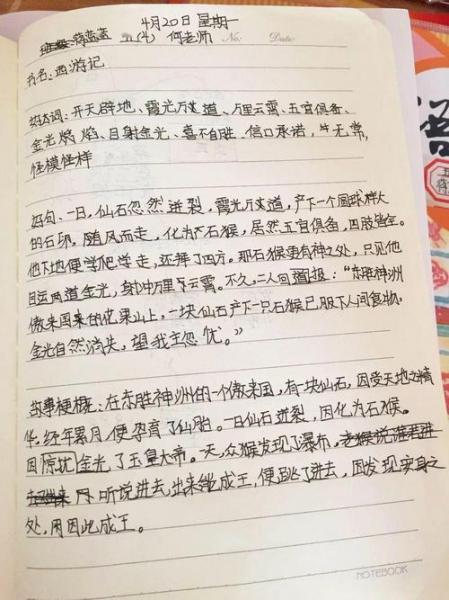 4月20日 星期一
蒋蓝蓝 五(4) 何老师 No: Date:
书名:西游记
好词:开天辟地、霞光万丈道、万里云霄、五官俱备、
金光焰焰、目射金光、喜不自胜、信口承诺、无常,
怪模怪样
好句:一日,仙石忽然迸裂,霞光万丈道,产下一个圆球样大
的石卵,随风而走,化为石猴,居然五官俱备,四肢皆全。
他下地便学爬学走,还拜了四方。那石猴更有神之处,只见他
目运两道金光,射冲万里云霄。不久,二人回报:“东胜神洲
傲来国来的花果山上,一块仙石产下一只石猴已服下人间食物,
金光自然消失,望我主忽忧。》
故事梗概:在东胜神洲的一个傲来国,有一块仙石,因受天地之精
华,经年累月,便孕育了仙胎。一日仙石迸裂,因化为石猴。
因惊扰金光了玉皇大帝。天,众猴发现了瀑布,
听说进去,出来能成王,便跳了进去,因发现安身之
处,用因此成王。
NOTEBOOK